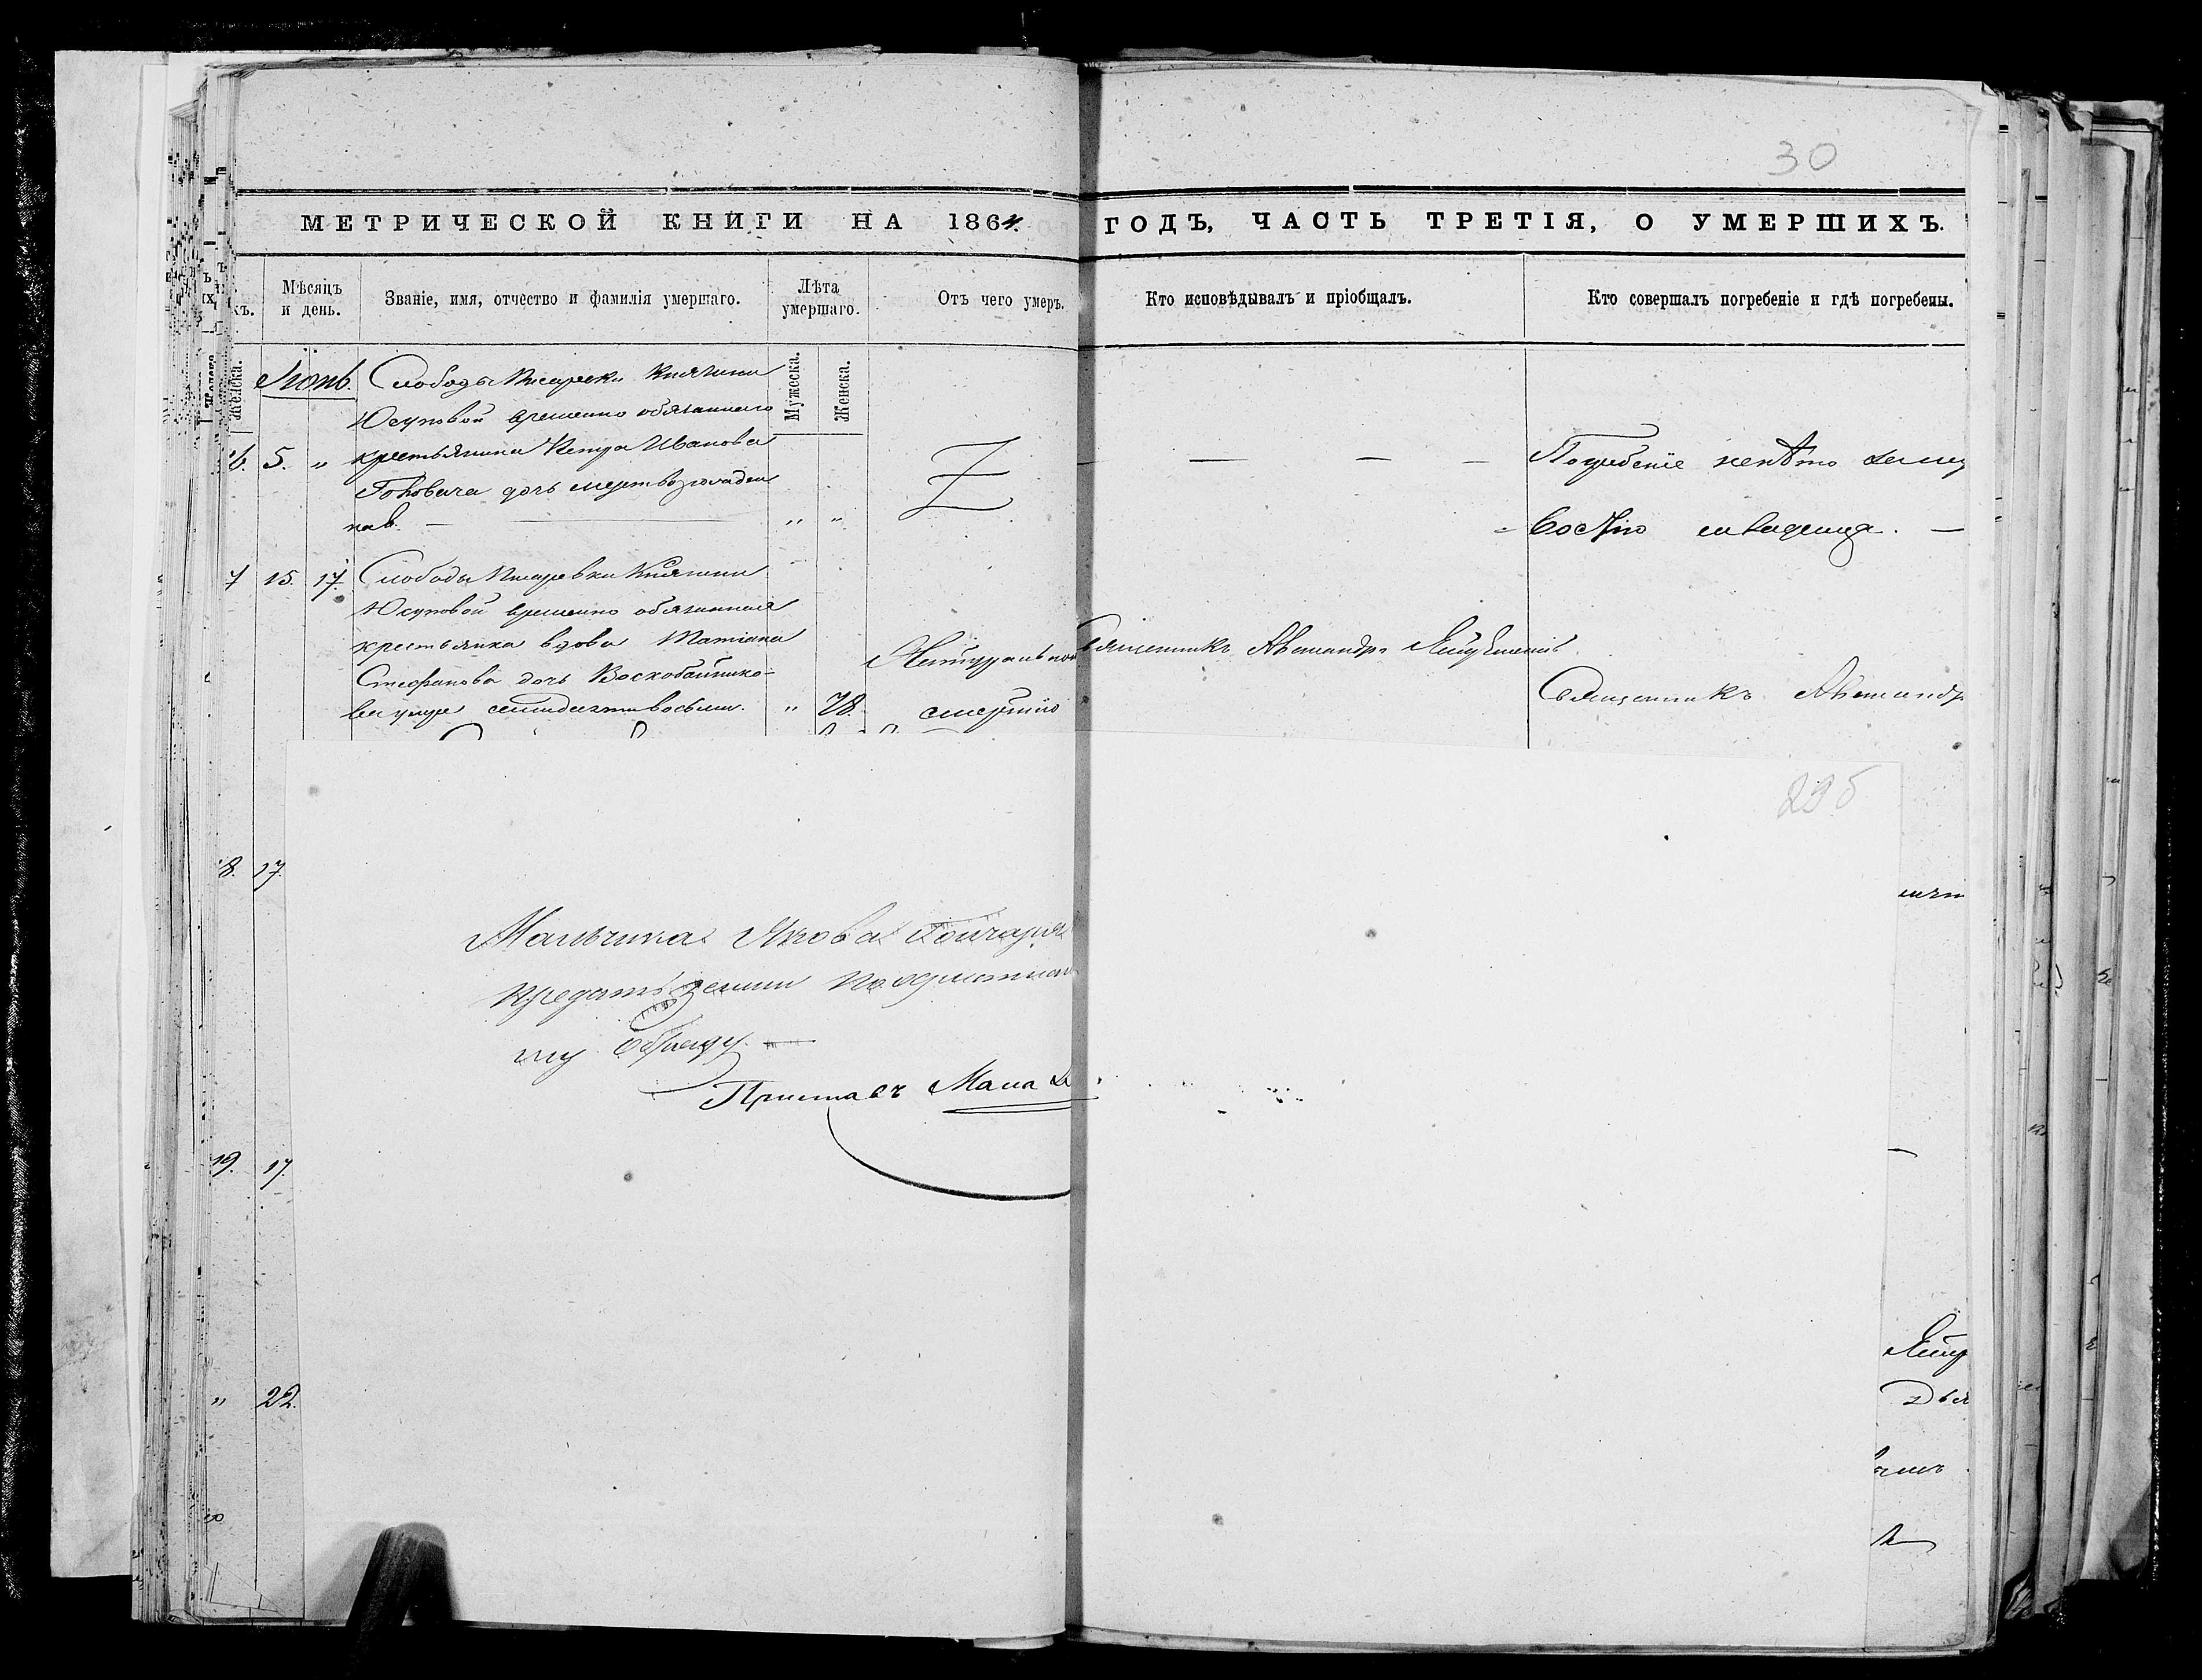 30
МЕТРИЧЕСКОЙ КНИГИ НА 1864. ГОДЪ, ЧАСТЬ ТРЕТІЯ, О УМЕРШИХЪ.
Мѣсяцъ и день.
Званіе, имя, отчество и фамилія умершаго.
Лѣта умершаго.
Отъ чего умеръ.
Кто исповѣдывалъ и пріобщалъ.
Кто совершалъ погребеніе и гдѣ погребены.
Женска.
Мужеска.
Женска.
Іюнь
Слободы Писаревки Княгини
Юсуповой временно обязаннаго
6. 5. „ крестьянина Петра Иванова
дочь мертворожден
ная. — „ „
Погребеніе
младенца. —
7 15. 17. Слободы Писаревки Княгини
Юсуповой временно обязанная
крестьянка вдова Татіана
Стефанова дочь Воскобойнико-
ва умре семидесятивосьми. „ 78.
Натуральною
смертію
Священникъ Александръ
Священникъ Александръ
235
8. 17.
Мальчика Якова Гончаря
предать земли по христианс
му обряду. —
Приставъ
19. 17.
„ 22.